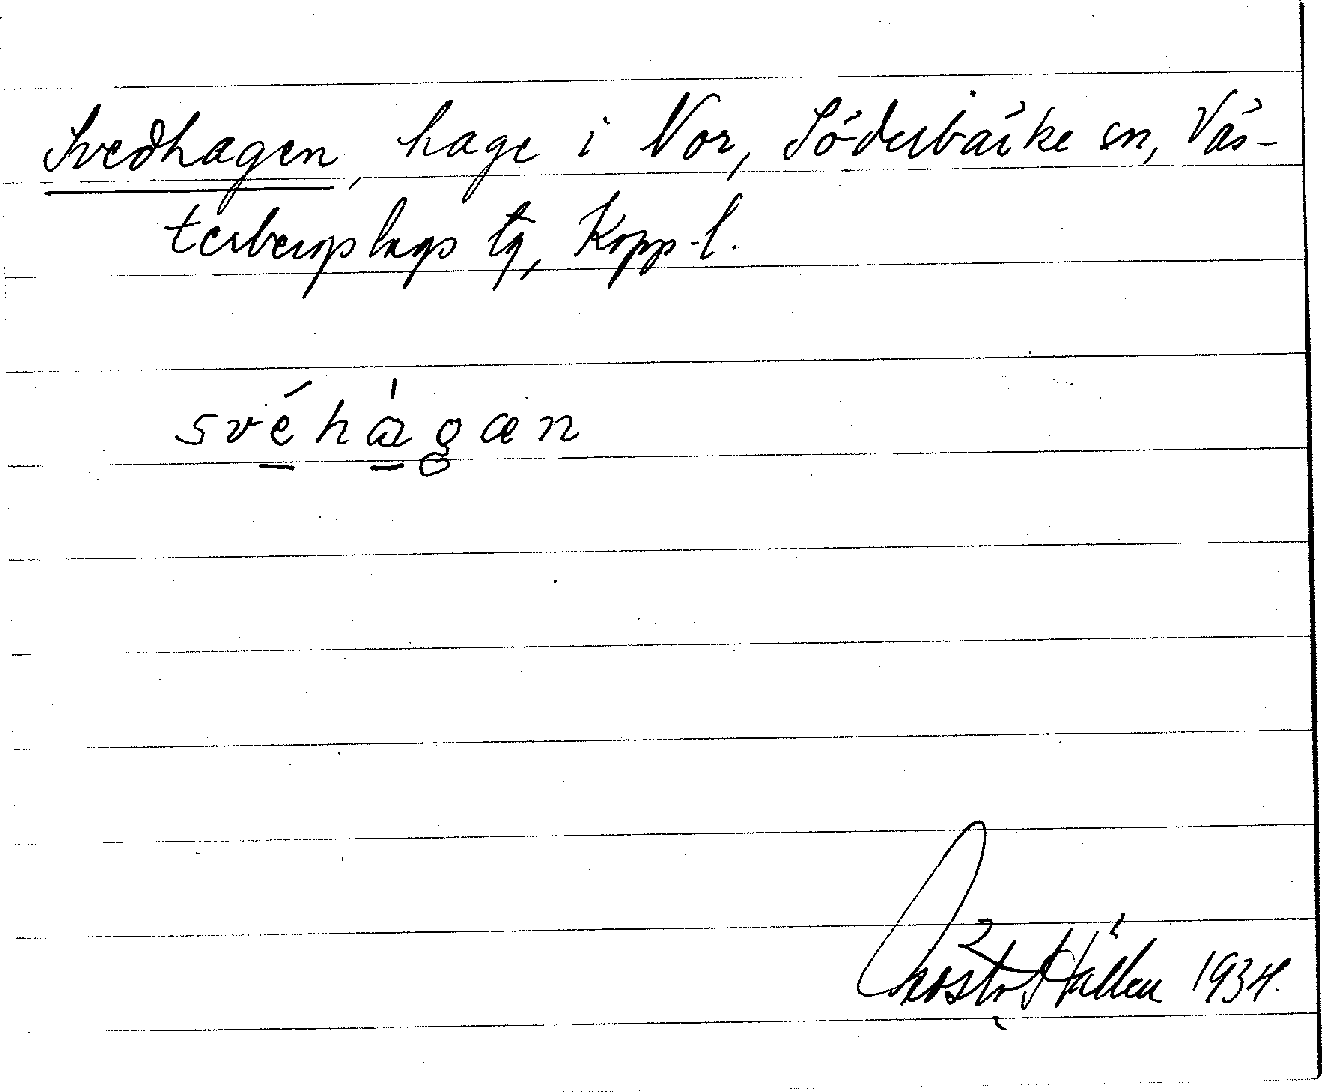 Svedhagen, hage i Nor, Söderbärke sn, Väs-
terbergslags tg, Kopp. l.
svéhágan
Gösta Hállen 1934.